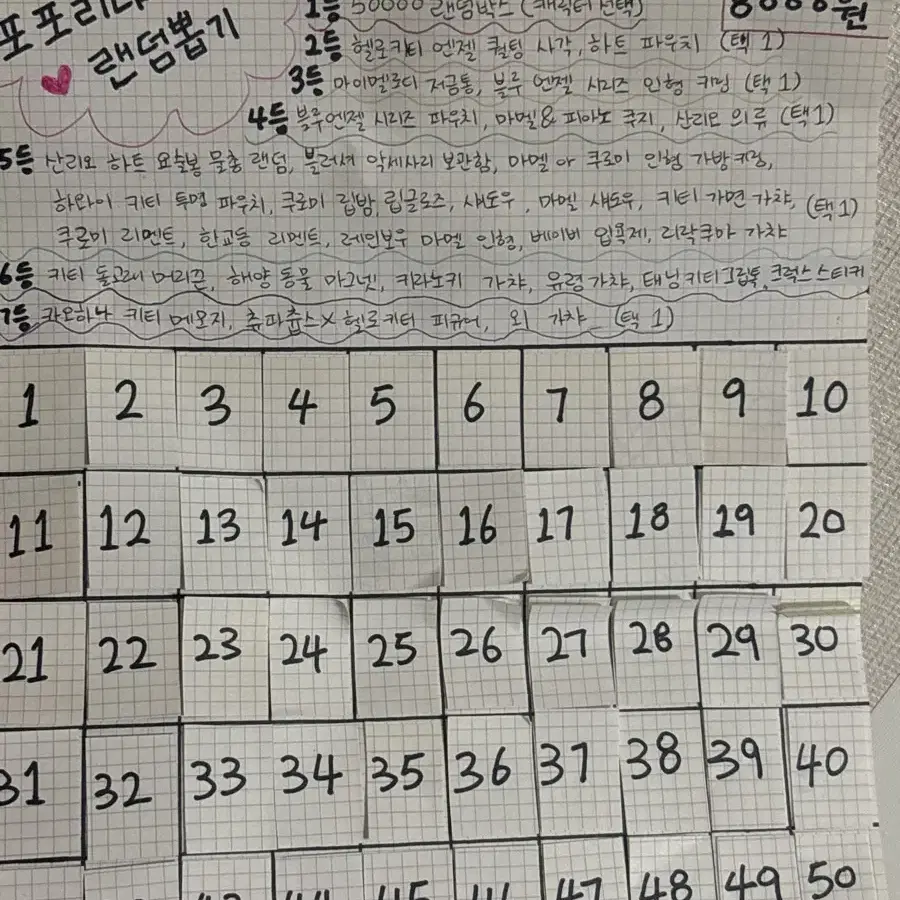 포포리나
랜덤뽑기
8000원
1등 50000 랜덤박스 (캐릭터 선택)
2등 헬로키티 엔젤 퀼팅 사각, 하트 파우치 (택 1)
3등 마이멜로디 저금통, 블루 엔젤 시리즈 인형 키링 (택 1)
4등 블루엔젤 시리즈 파우치, 마멜 & 피아노 쿠지, 산리오 의류 (택1)
5등 산리오 하트 요술봉 물총 랜덤, 블러셔 악세사리 보관함, 마멜 or 쿠로미 인형 가방키링,
하와이 키티 투명 파우치, 쿠로미 립밤, 립글로즈, 섀도우, 마멜 섀도우, 키티 가면 가챠, (택1)
쿠로미 리멘트, 한교동 리멘트, 레인보우 마멜 인형, 베이비 입욕제, 리락쿠마 가챠
6등 키티 돌고래 머리끈, 해양 동물 마그넷, 키라노키 가챠, 유령가챠, 태닝키티그립톡, 크럭스 스티커
7등 카오하나 키티 메모지, 츄파춥스 X 헬로키티 피규어, 외 가챠 (택 1)
1 2 3 4 5 6 7 8 9 10
11 12 13 14 15 16 17 18 19 20
21 22 23 24 25 26 27 28 29 30
31 32 33 34 35 36 37 38 39 40
43 44 45 47 48 49 50